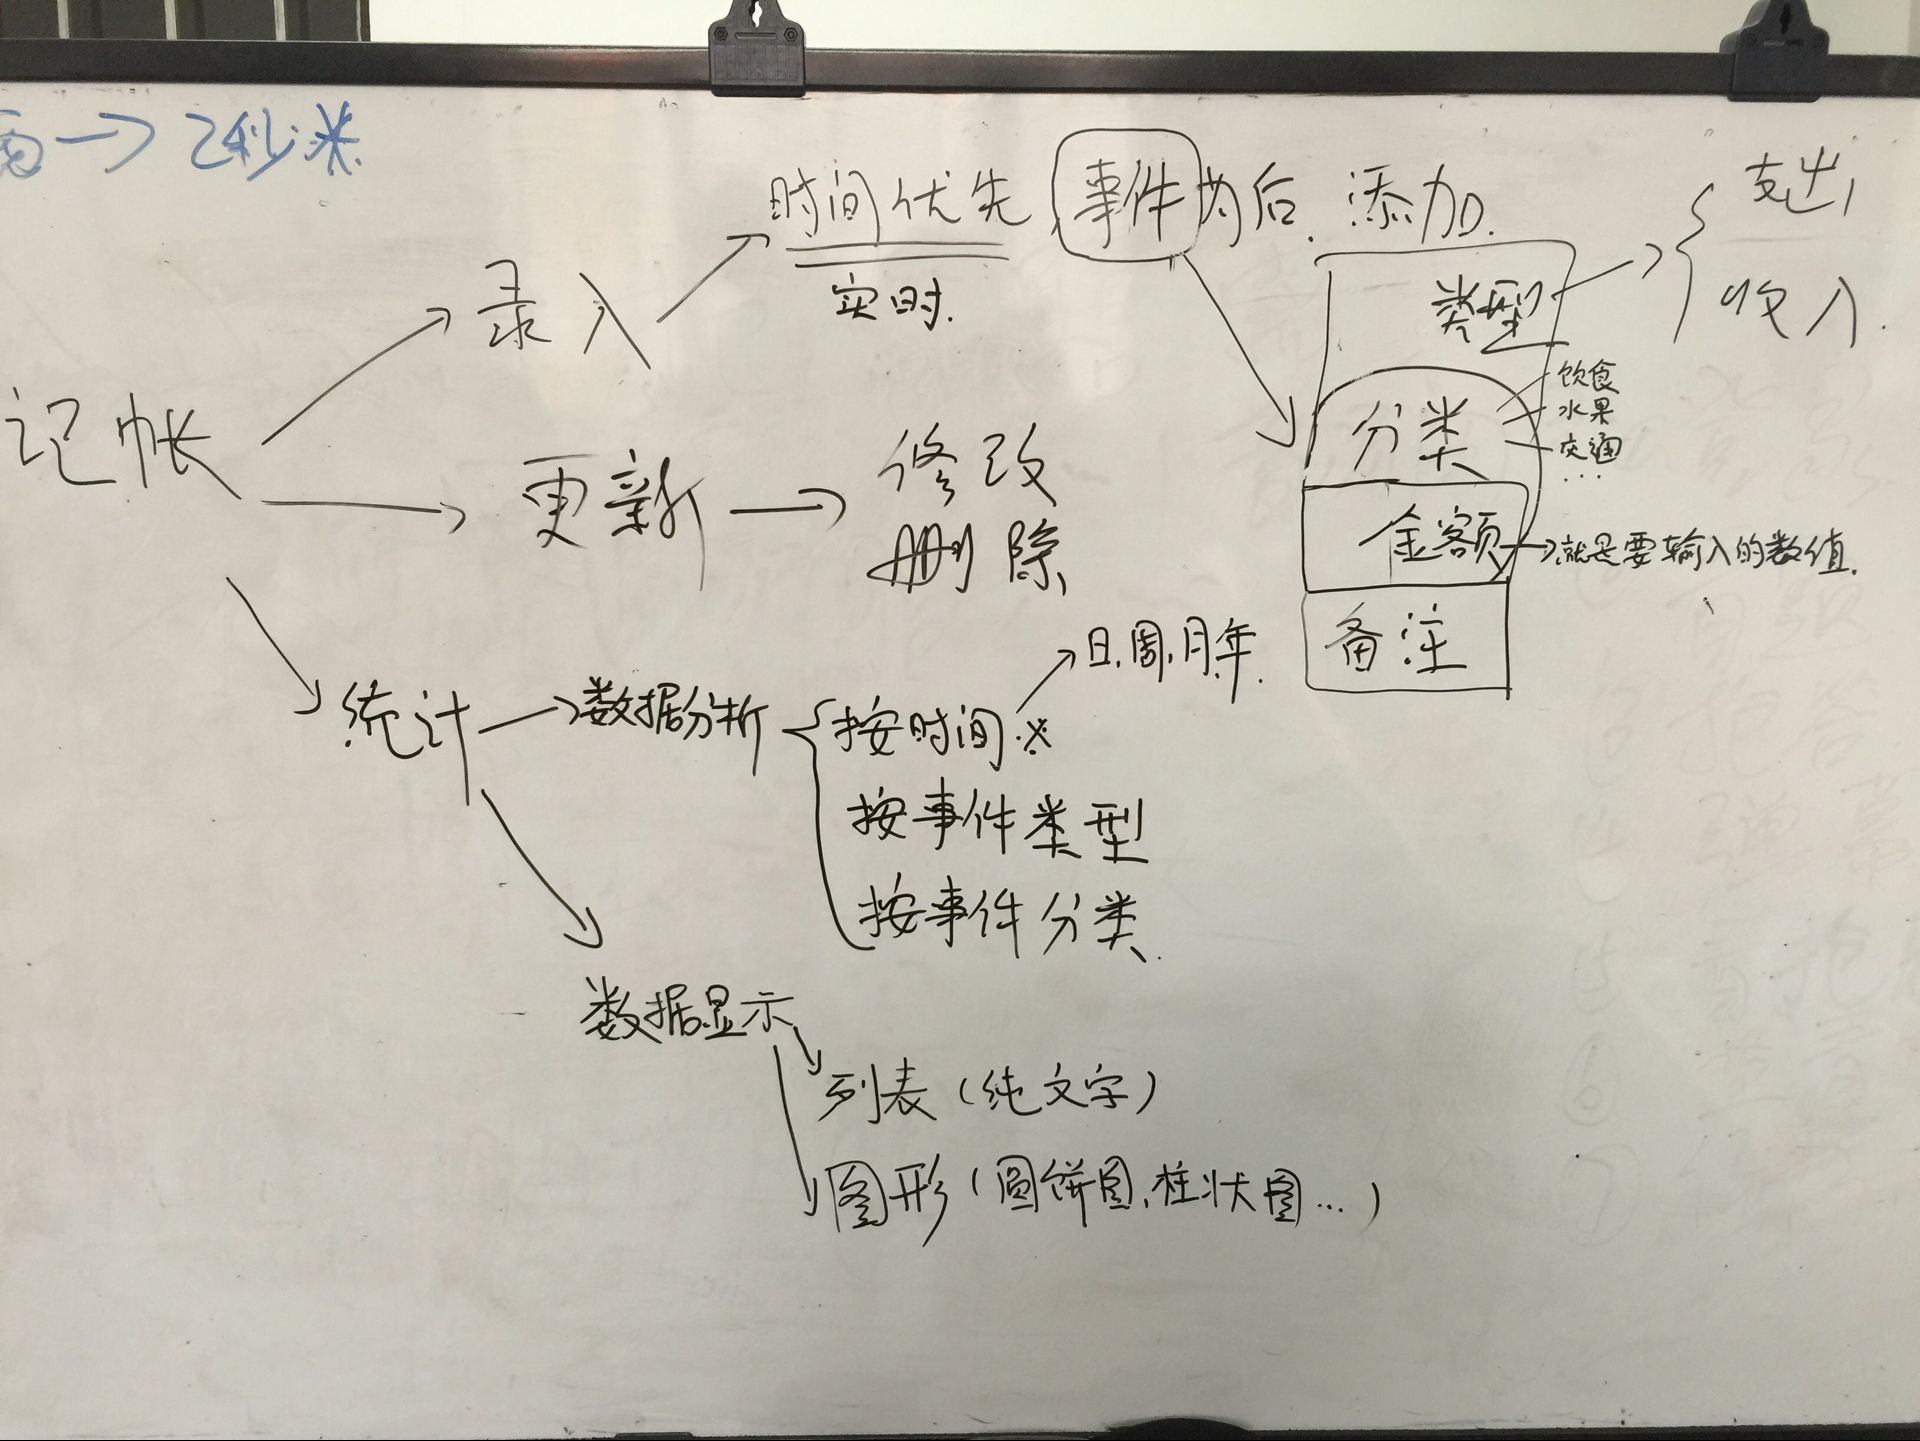 → 2秒米
时间优先,事件为后.添加.
实时.
支出
收入.
录入
类型
记帐
分类
饮食
水果
交通
...
更新 → 修改
删除
金额 → 就是要输入的数值.
备注
日.周.月.年.
统计 → 数据分析
按时间 ※
按事件类型
按事件分类.
数据显示
列表(纯文字)
图形(圆饼图,柱状图...)